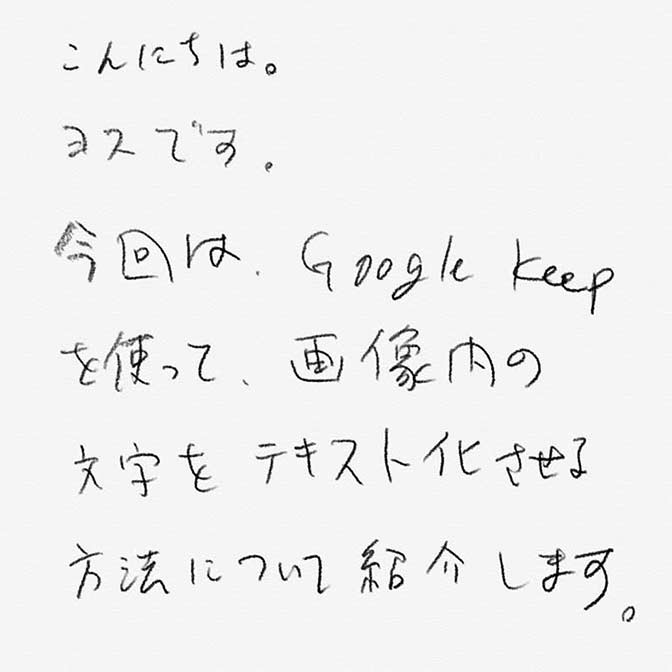 こんにちは。
ヨスです。
今回は、Google Keep
を使って、画像内の
文字をテキスト化させる
方法について紹介します。